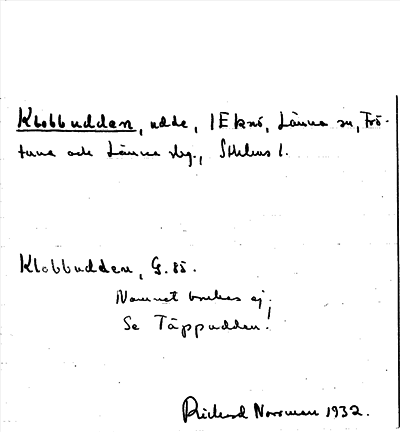 Klobbudden, udde, 1 Eknö, Länna sn, Frö-
tuna och Länna skg., Sthlms l.
Klobbudden, G. 85.
Namnet brukas ej.
Se Täppudden!
Rickard Norrman 1932.